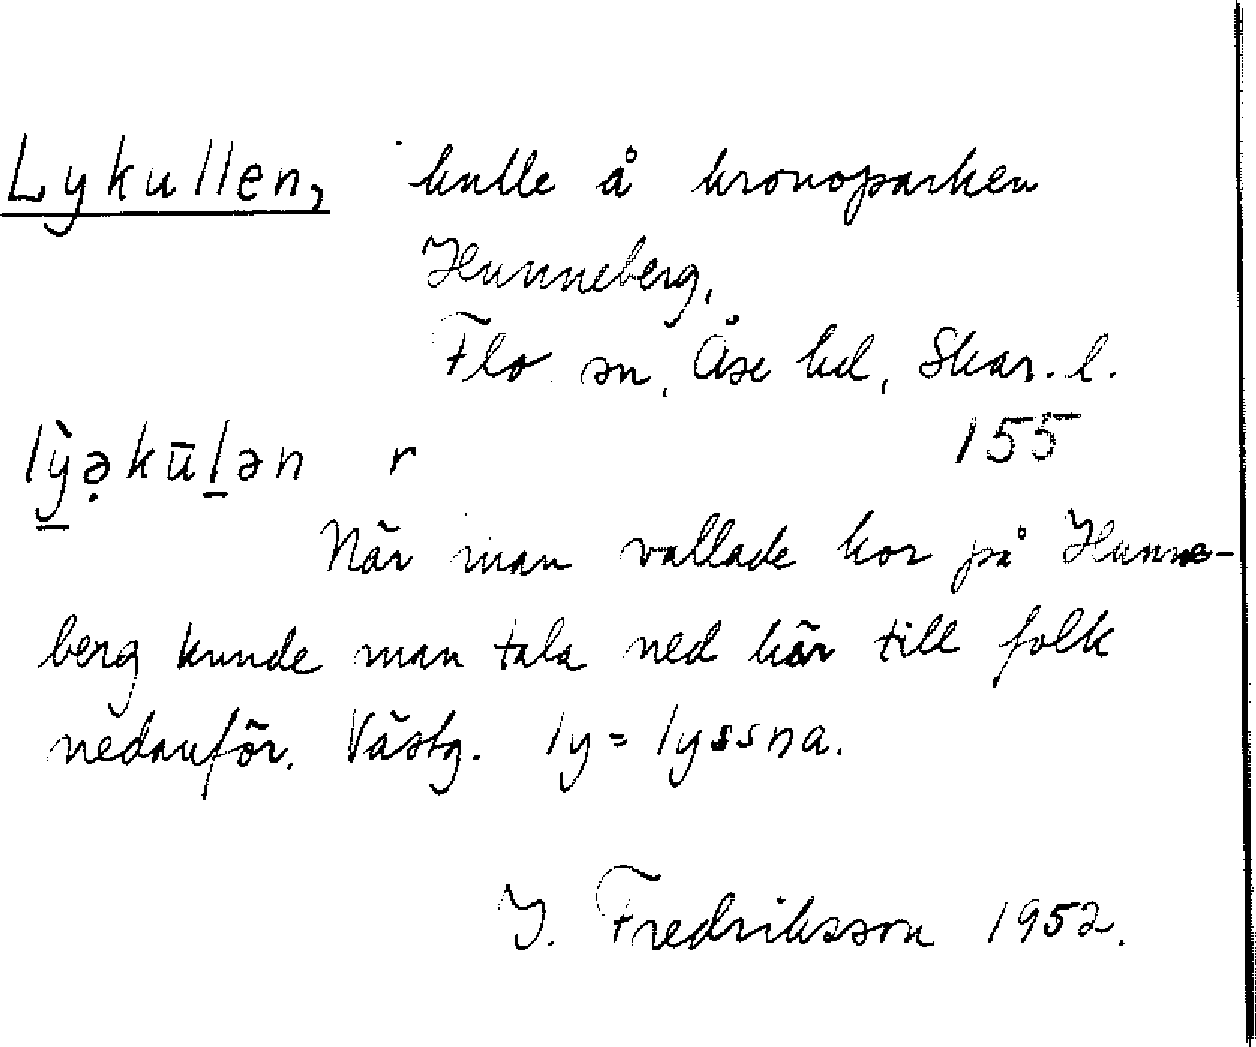 Lykullen, kulle å kronoparken
Hunneberg,
Flo sn, Åse hd, Skar. l.
lỳ̠ə̣kūl̠ən r 155
När man vallade kor på Hunne-
berg kunde man tala ned här till folk
nedanför. Västg. ly = lyssna.
Y. Fredriksson 1952.